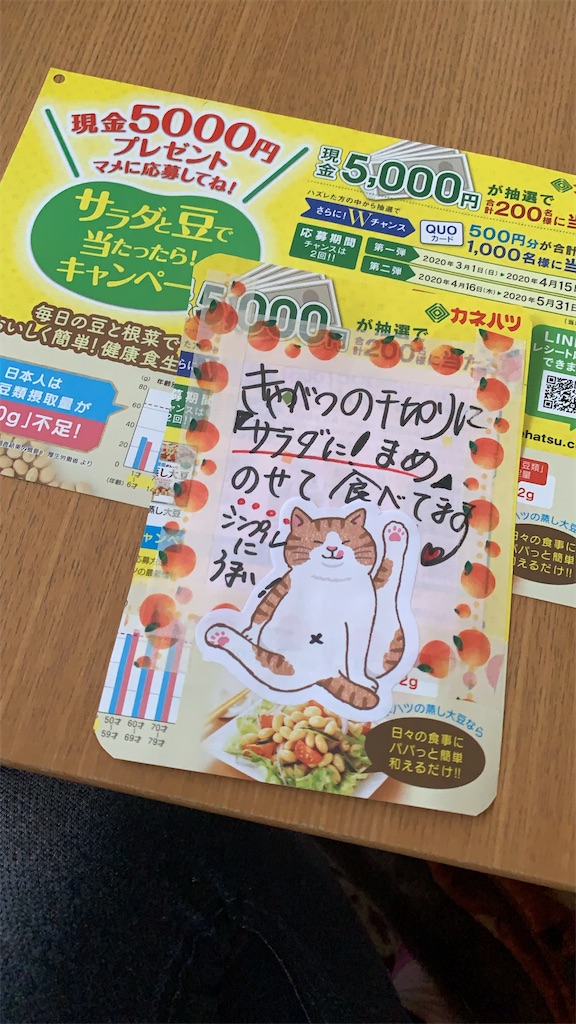 現金5000円
プレゼント
マメに応募してね!
サラダと豆で
当たったら!
キャンペー
毎日の豆と根菜で
おいしく簡単!健康食生
日本人は
豆類摂取量が
0g」不足!
現金5,000円が抽選で
合計200名様に当
ハズレた方の中から抽選で
さらに!Wチャンス
QUO
カード
500円分が合計
1,000名様に当
応募期間
チャンスは
2回!!
第一弾
2020年3月1日(日)▶2020年4月15日
第二弾
2020年4月16日(木)▶2020年5月31日
,000円が抽選で
合計200名様に当
カネハツ
LIN
レシート
できま
ohatsu.c
きゃべつの千切りに
『サラダに!まめ』
のせて食べてます
シンプル
に
うまい!!
2g
50才
59才
60才
69才
70才
79才
ハツの蒸し大豆なら
日々の食事に
パパっと簡単
和えるだけ!!
2g
ハツの蒸し大豆
日々の食事に
パパっと簡単
和えるだけ!!